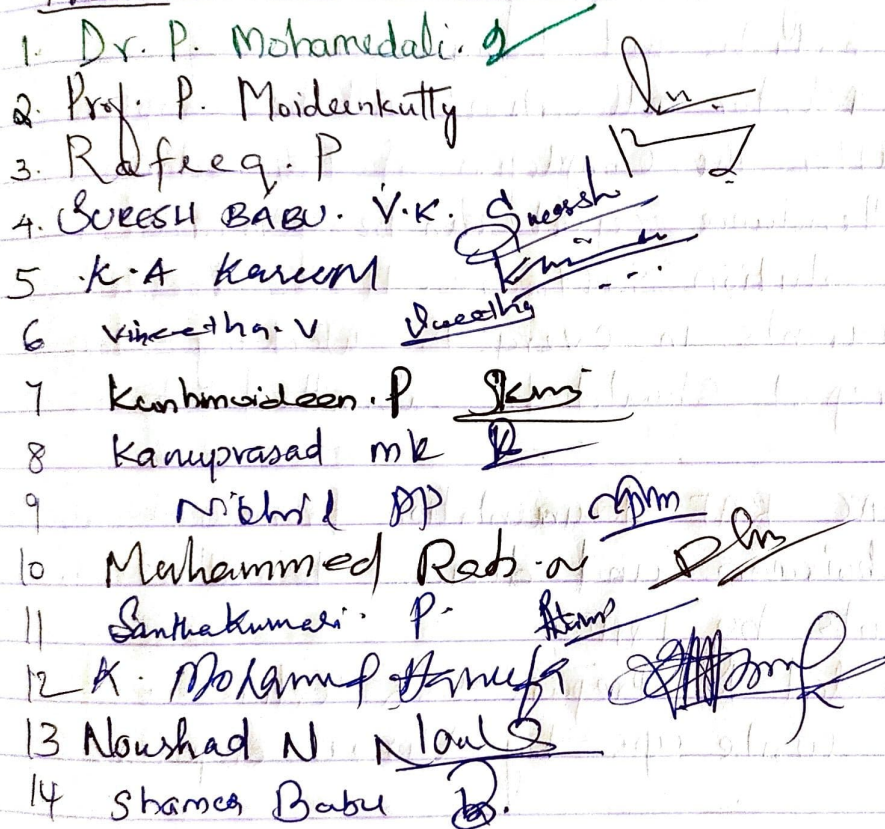 1. Dr. P. Mohamedali.
2. Prof. P. Moideenkutty
3. Rafeeq. P
4. SURESH BABU. V.K. Suressh
5 .K.A Kareem
6 Vineetha. V Vneetha
7 Kunhmoideen. P
8 Kanuprasad mk
9 Nikhil PP
10 Muhammed
11 Santhakumari. P.
12 K. Mohamed Haneefa
13 Noushad N
14 Babu